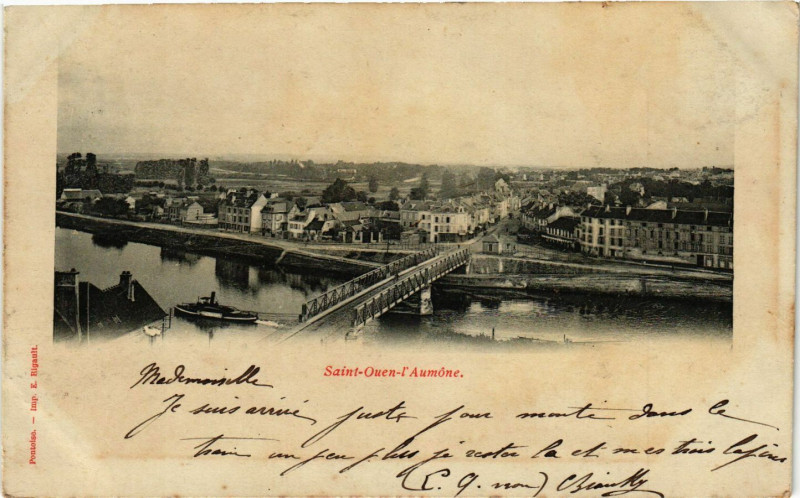 Saint-Ouen-l'Aumône.
Pontoise. — Imp. E. Rigault.
Mademoiselle
Je suis arrivé juste pour monté dans le
train un peu plus je rester la et mes trois lapins